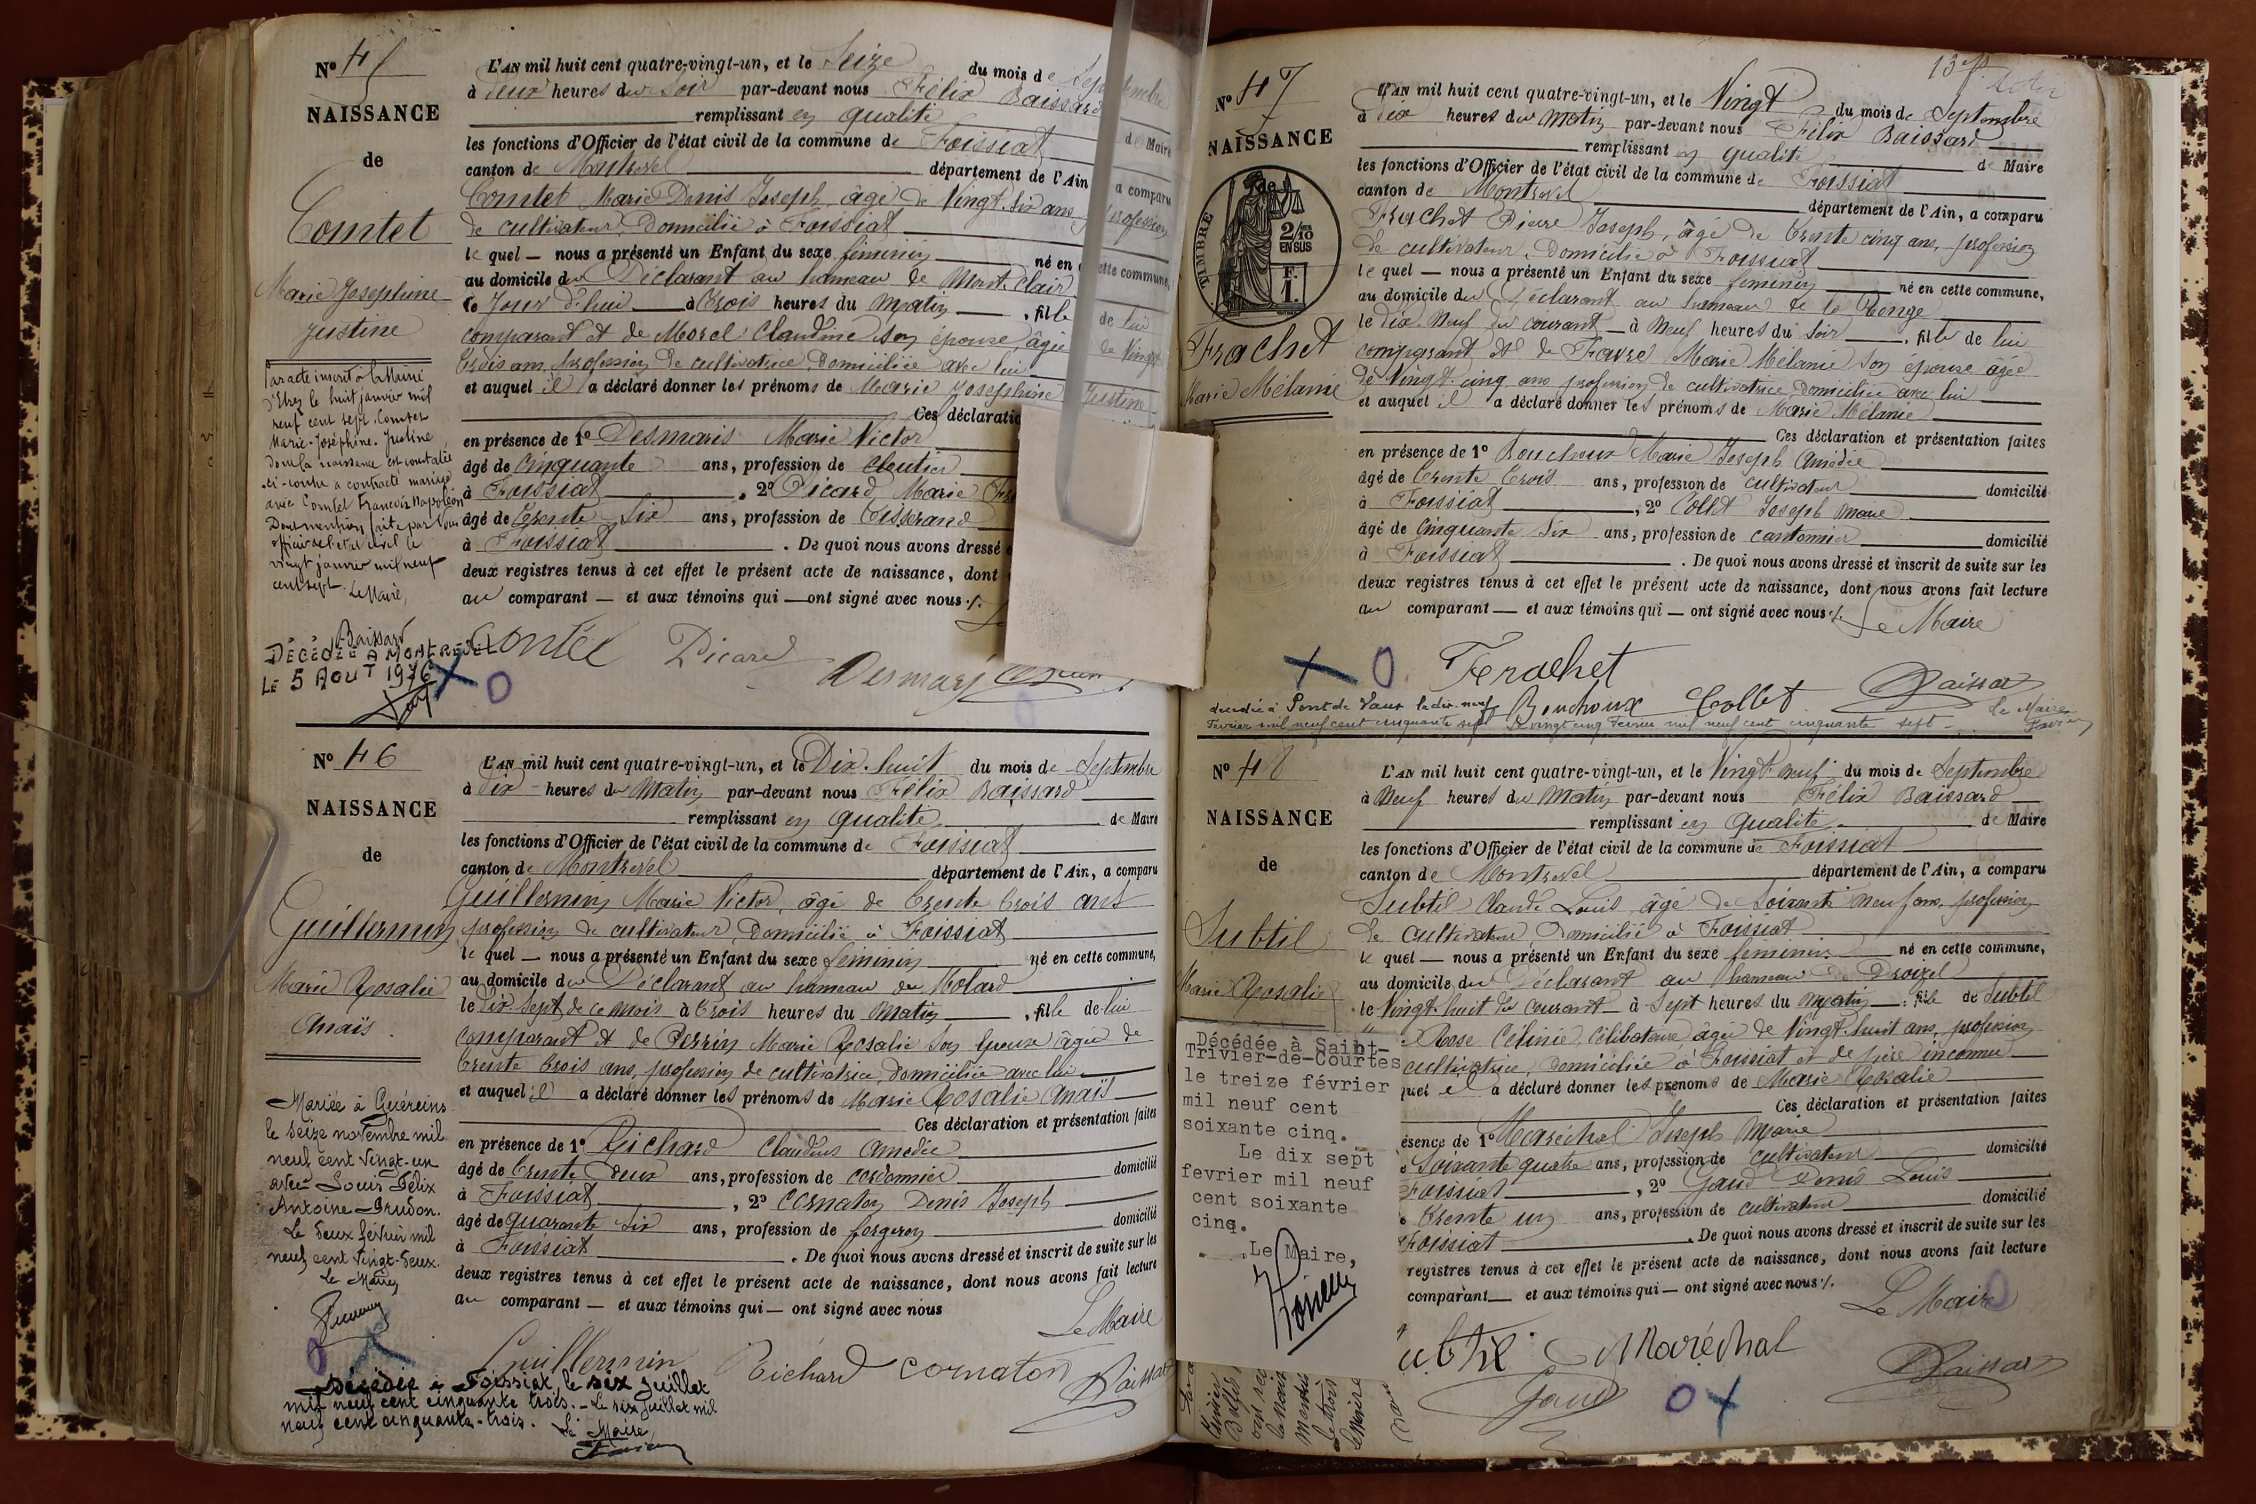 N° 45
NAISSANCE
de
Comtet
Marie Josephine
Justine
Par acte inscrit à la Mairie
d'Etrez le huit janvier mil
neuf cent sept Comtet
Marie-Joséphine-Justine
dont la naissance est constatée
ci-contre a contracté mariage
avec Comtet François Napoléon
Dont mention faite par nous
officier de l'état civil le
vingt janvier mil neuf
cent sept. Le Maire,
Baissard
DÉCÉDÉE A MONTREVEL
LE 5 AOUT 1976
L'AN mil huit cent quatre-vingt-un, et le Seize du mois de Septembre
à deux heures du Soir par-devant nous Félix Baissard
remplissant en qualité de Maire
les fonctions d'Officier de l'état civil de la commune de Foissiat
canton de Montrevel département de l'Ain, a comparu
Comtet Marie Denis Joseph, âgé de Vingt-six ans, profession
de cultivateur, Domicilié à Foissiat
le quel — nous a présenté un Enfant du sexe féminin né en cette commune,
au domicile du Déclarant au hameau de Mont-Clair
ce Jour d'hui à trois heures du Matin, fille de lui
comparant et de Morel Claudine son épouse âgée de Vingt
trois ans, profession de cultivatrice, Domiciliée avec lui
et auquel il a déclaré donner les prénoms de Marie Joséphine Justine
Ces déclaratio
en présence de 1° Desmaris Marie Victor
âgé de Cinquante ans, profession de Cloutier
à Foissiat, 2° Picard Marie
âgé de Trente-Six ans, profession de Tisserand
à Foissiat. De quoi nous avons dressé
deux registres tenus à cet effet le présent acte de naissance, dont
au comparant — et aux témoins qui — ont signé avec nous ./.
Comtet Picard Desmaris
N° 46
NAISSANCE
de
Guillermin
Marie Rosalie
Anaïs.
Mariée à Guéreins
le seize novembre mil
neuf cent vingt-un
avec Louis Félix
Antoine Brudon.
Le deux février mil
neuf cent vingt-deux.
Le Maire
L'AN mil huit cent quatre-vingt-un, et le Dix-huit du mois de Septembre
à Dix heures du Matin par-devant nous Félix Baissard
remplissant en qualité de Maire
les fonctions d'Officier de l'état civil de la commune de Foissiat
canton de Montrevel département de l'Ain, a comparu
Guillermin Marie Victor, âgé de Trente trois ans
profession de cultivateur, Domicilié à Foissiat
le quel — nous a présenté un Enfant du sexe féminin né en cette commune,
au domicile du Déclarant au hameau du Molard
le Dix-Sept de ce mois à trois heures du Matin, fille de lui
comparant et de Perrin Marie Rosalie son épouse âgée de
trente trois ans, profession de cultivatrice, Domiciliée avec lui
et auquel il a déclaré donner les prénoms de Marie Rosalie Anaïs
Ces déclaration et présentation faites
en présence de 1° Richard Claudius Amédée
âgé de Trente Deux ans, profession de cordonnier domicilié
à Foissiat, 2° Cornaton Denis Joseph
âgé de quarante Six ans, profession de forgeron domicilié
à Foissiat. De quoi nous avons dressé et inscrit de suite sur les
deux registres tenus à cet effet le présent acte de naissance, dont nous avons fait lecture
au comparant — et aux témoins qui — ont signé avec nous
Le Maire
Guillermin Richard Cornaton Baissard
Décédée à Foissiat, le six Juillet
mil neuf cent cinquante trois. - Le six Juillet mil
neuf cent cinquante-trois.
Le Maire,
N° 47
NAISSANCE
de
TIMBRE
2/10
EN SUS
F.
1.
Frachet
Marie Mélanie
L'AN mil huit cent quatre-vingt-un, et le Vingt du mois de Septembre
à Dix heures du Matin par-devant nous Félix Baissard
remplissant en qualité de Maire
les fonctions d'Officier de l'état civil de la commune de Foissiat
canton de Montrevel département de l'Ain, a comparu
Frachet Pierre Joseph, âgé de trente cinq ans, profession
de cultivateur, Domicilié à Foissiat
le quel — nous a présenté un Enfant du sexe féminin né en cette commune,
au domicile du Déclarant au hameau de
le Dix-Neuf du courant à Neuf heures du Soir, fille de lui
comparant et de Favre Marie Mélanie son épouse âgée
de Vingt-cinq ans profession de cultivatrice Domiciliée avec lui
et auquel il a déclaré donner les prénoms de Marie Mélanie
Ces déclaration et présentation faites
en présence de 1° Bouchoux Marie Joseph Amédée
âgé de Trente trois ans, profession de cultivateur domicilié
à Foissiat, 2° Collet Joseph Marie
âgé de Cinquante Six ans, profession de cantonnier domicilié
à Foissiat. De quoi nous avons dressé et inscrit de suite sur les
deux registres tenus à cet effet le présent acte de naissance, dont nous avons fait lecture
au comparant — et aux témoins qui — ont signé avec nous ./.
Le Maire
Frachet
Bouchoux Collet Baissard
décédée à Pont de Vaux le dix-neuf
Février mil neuf cent cinquante sept Le vingt cinq Février mil neuf cent cinquante sept -
Le Maire
N° 48
NAISSANCE
de
Subtil
Marie Rosalie
Décédée à Saint-
Trivier-de-Courtes
le treize février
mil neuf cent
soixante cinq.
Le dix sept
fevrier mil neuf
cent soixante
cinq.
Le Maire,
L'AN mil huit cent quatre-vingt-un, et le Vingt-neuf du mois de Septembre
à Neuf heures du Matin par-devant nous Félix Baissard
remplissant en qualité de Maire
les fonctions d'Officier de l'état civil de la commune de Foissiat
canton de Montrevel département de l'Ain, a comparu
Subtil Claude Louis, âgé de Soixante neuf ans, profession
de cultivateur, Domicilié à Foissiat
le quel — nous a présenté un Enfant du sexe féminin né en cette commune,
au domicile du Déclarant au hameau de
le Vingt-huit du courant à Sept heures du Matin, fille de Subtil
Rose Célinie, Célibataire âgée de Vingt-huit ans, profession
cultivatrice, Domiciliée à Foissiat et de père inconnu
quel il a déclaré donner les prénoms de Marie Rosalie
Ces déclaration et présentation faites
ésence de 1° Maréchal Joseph Marie
Soixante quatre ans, profession de cultivateur domicilié
Foissiat, 2° Gaud Denis Louis
Trente un ans, profession de cultivateur domicilié
Foissiat. De quoi nous avons dressé et inscrit de suite sur les
registres tenus à cet effet le présent acte de naissance, dont nous avons fait lecture
comparant — et aux témoins qui — ont signé avec nous ./.
Le Maire
Maréchal
Gaud Baissard